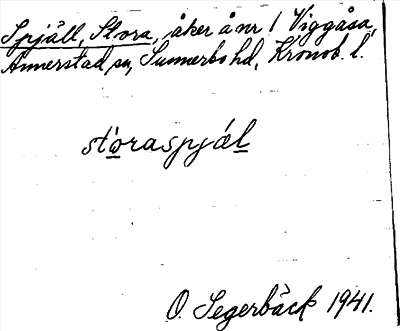 Spjäll, Stora, åker å nr 1 Viggåsa,
Annerstad sn, Sunnerbo hd, Kronob. l.
stóraspjæl
O. Segerbäck 1941.